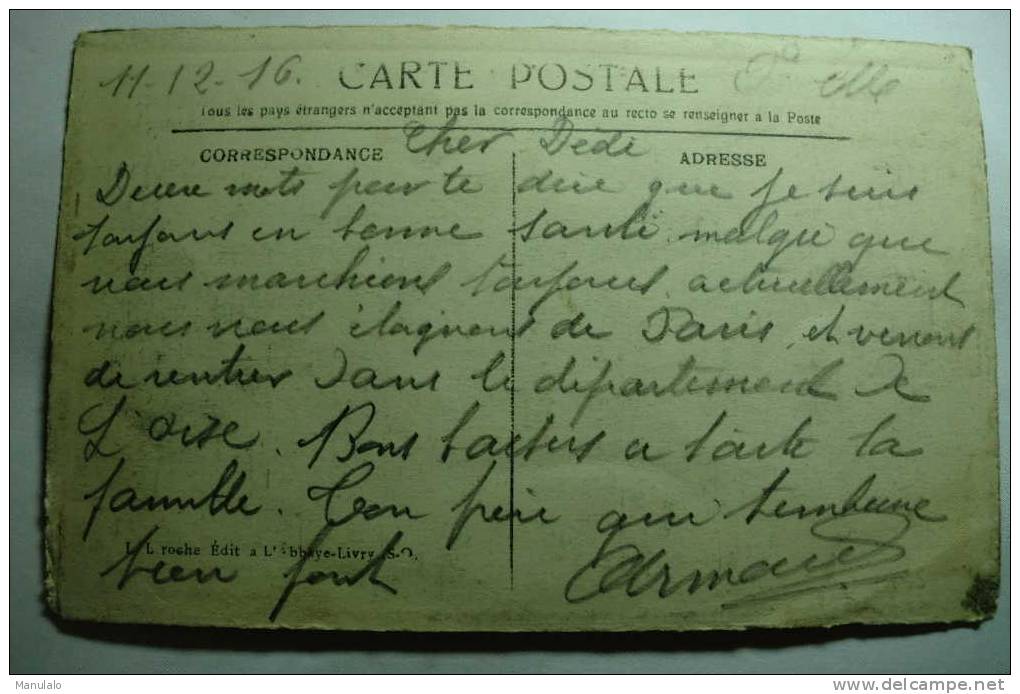 11-12-16. CARTE POSTALE
Tous les pays étrangers n'acceptant pas la correspondance au recto se renseigner a la Poste
CORRESPONDANCE Cher Dédé ADRESSE
Deux mots pour te dire que je suis
toujours en bonne santé, malgré que
nous marchions toujours, actuellement
nous nous éloignons de Paris, et venons
de rentrer dans le département de
L'oise. Bons baisers a toute la
famille. Ton père qui t'embrasse
L. L roche Édit a L'Abbaye-Livry (S-O.
bien fort Armand
Manulalo
delcampe.net